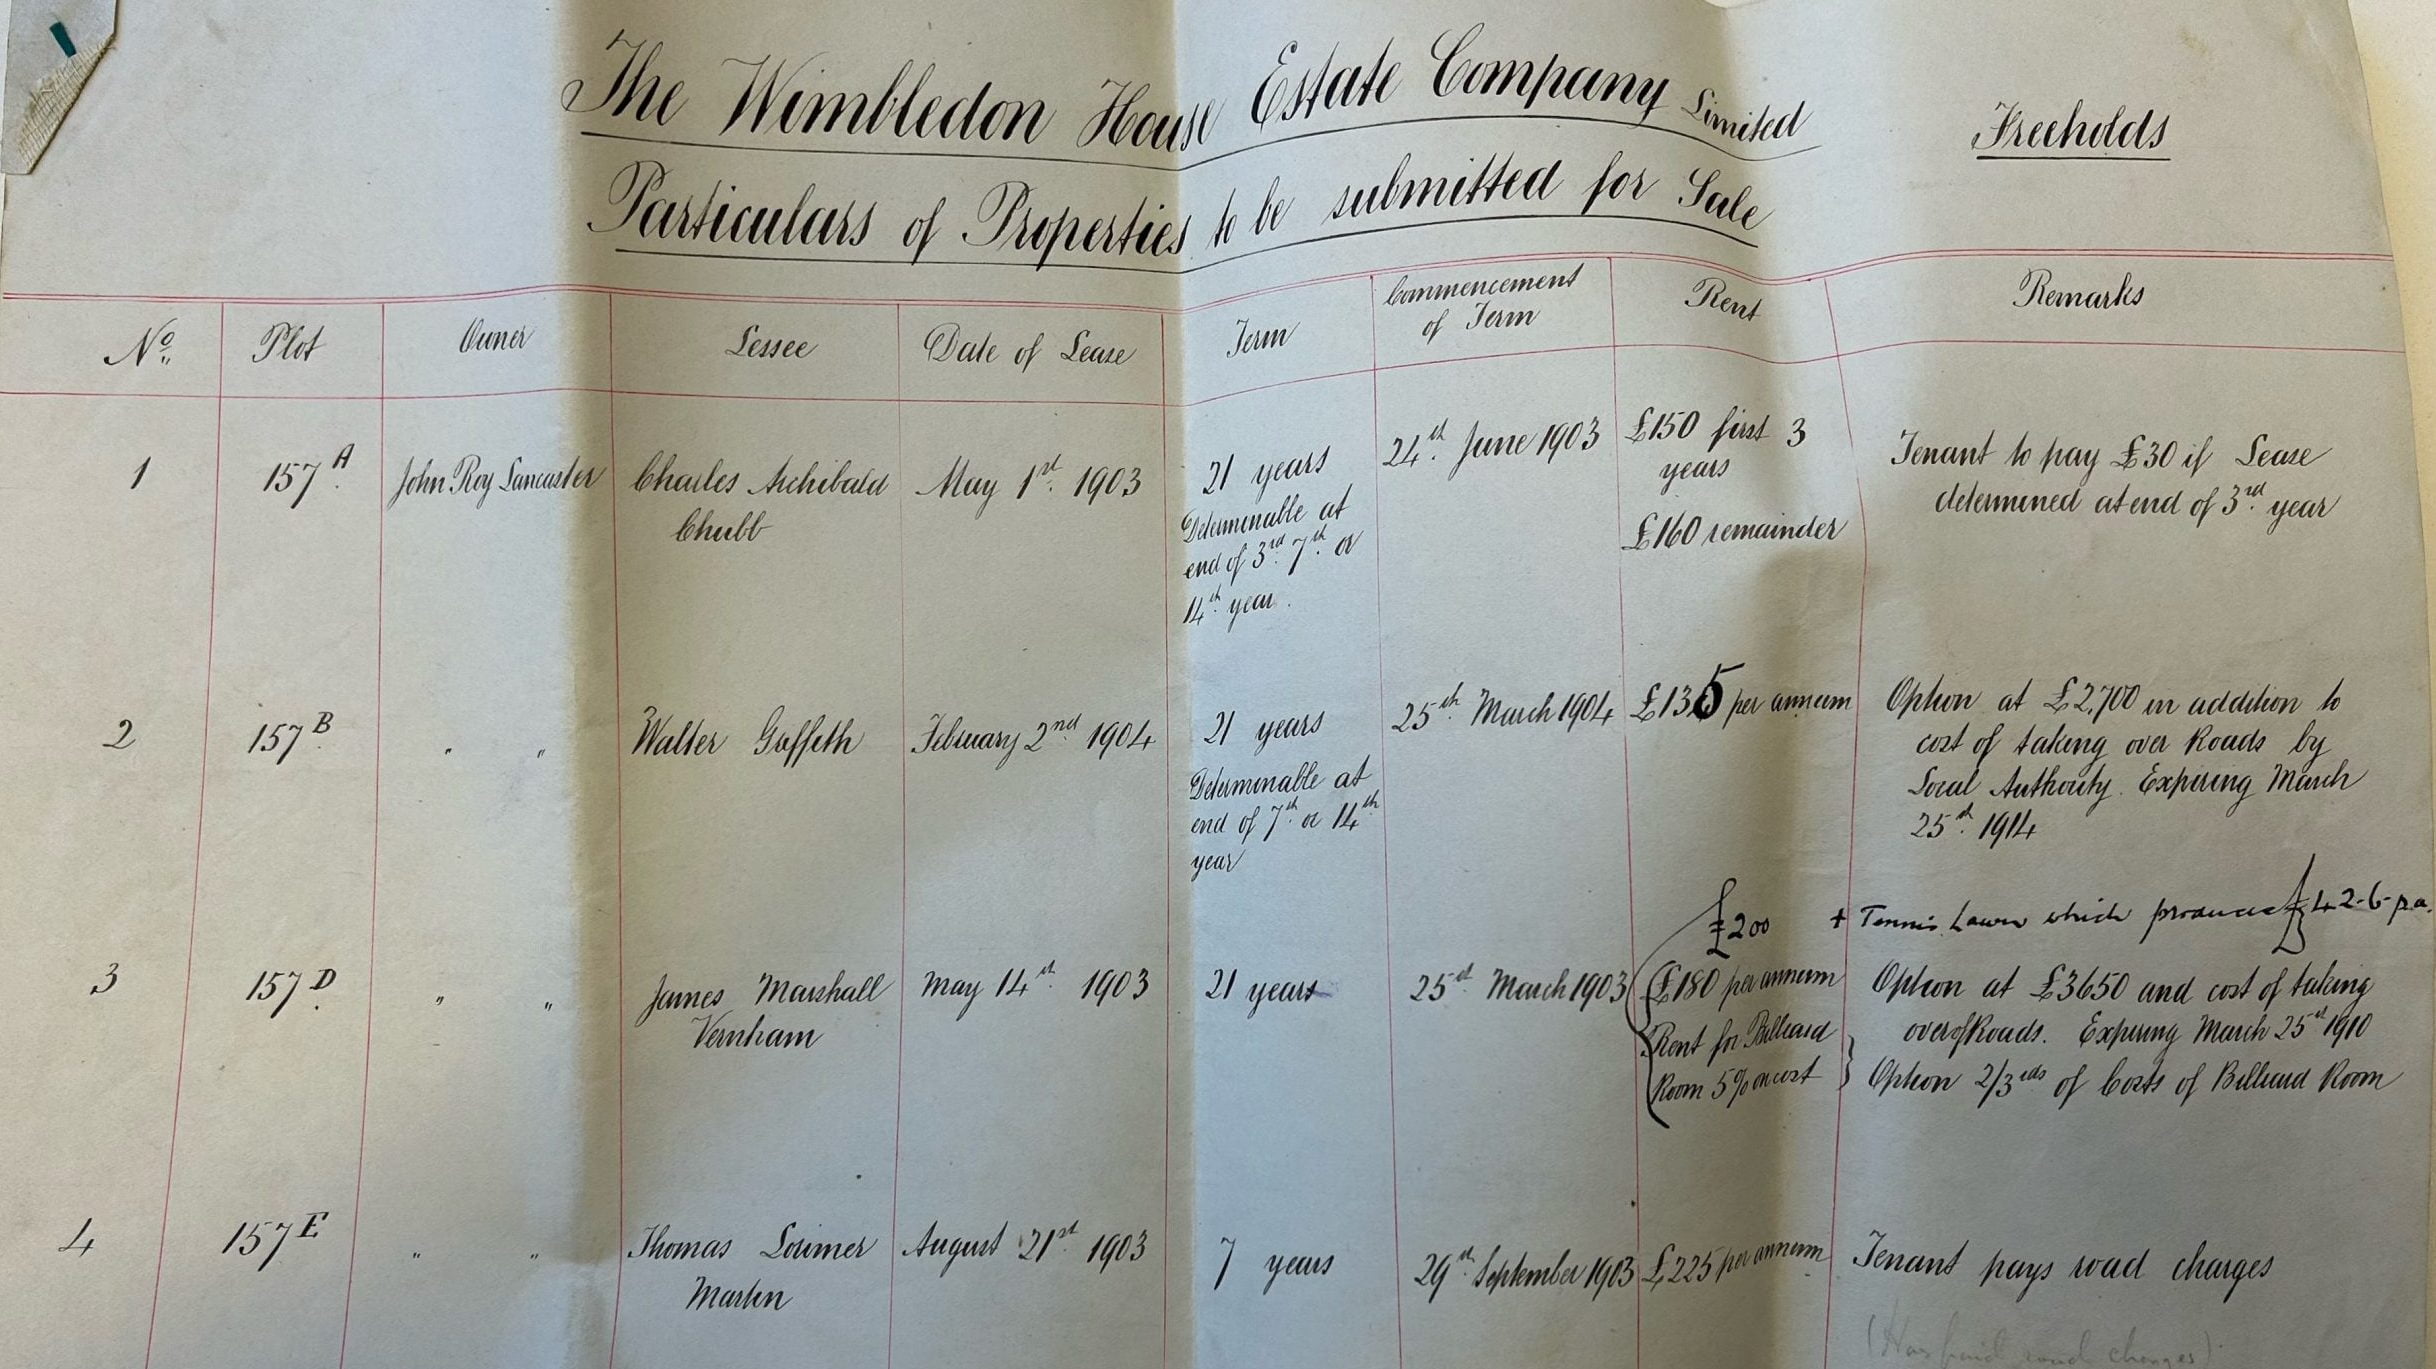 The Wimbledon House Estate Company Limited
Freeholds
Particulars of Properties to be submitted for Sale
No. Plot Owner Lessee Date of Lease Term Commencement of Term Rent Remarks
1 157A John Roy Lancaster Charles Archibald Chubb May 1st 1903
21 years
Determinable at
end of 3rd 7th or
14th year.
24th June 1903
£150 first 3
years
£160 remainder
Tenant to pay £30 if Lease
determined at end of 3rd year
2 157B " " Walter February 2nd 1904
21 years
Determinable at
end of 7th or 14th
year
25th March 1904
£135 per annum
Option at £2,700 in addition to
cost of taking over Roads by
Local Authority. Expiring March
25th 1914
£200 + Tennis Lawn which produces £42-6- p.a.
3 157D " " James Marshall Vernham May 14th 1903
21 years
25th March 1903
£180 per annum
Rent for Billiard
Room 5% on cost
Option at £3650 and cost of taking
over of Roads. Expiring March 25th 1910
Option 2/3rds of Costs of Billiard Room
4 157E " " Thomas Lorimer Martin August 21st 1903
7 years
29th September 1903
£225 per annum
Tenant pays road charges
(Has paid road charges)